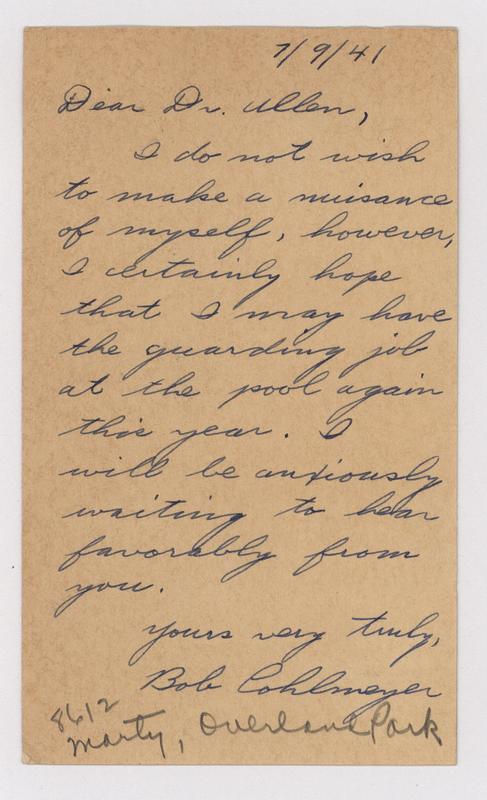 7/9/41
Dear Dr. Allen,
I do not wish
to make a nuisance
of myself, however,
I certainly hope
that I may have
the guarding job
at the pool again
this year. I
will be anxiously
waiting to hear
favorably from
you.
Yours very truly,
Bob Cohlmeyer
8612
Marty, Overland Park